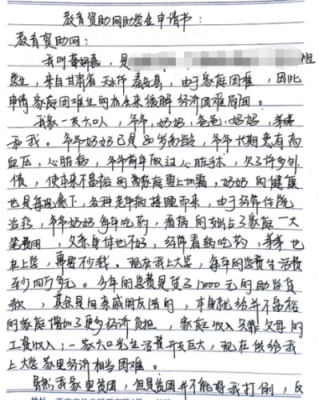 教育资助网助学金申请书：
教育资助网：
我叫 嘉，是 班
学生，来自甘肃省天水市秦安县，由于家庭困难，因此
申请家庭困难生的 来缓解经济困难局面。
我家一共六口人，爷爷，奶奶，爸爸，妈妈，弟弟
和我。爷爷奶奶已是80岁高龄，爷爷长期患有高
血压，心脏病，爷爷前年做过心脏手术，欠了许多外
债，使本来不富裕的家庭雪上加霜，奶奶的健康
也是每况愈下，各种老年病接踵而来，由于经常住院
治疗，爷爷奶奶每年吃药，看病的支出占了家庭一大
笔费用，父亲身体也不好，经常看病吃药，弟弟也
在上学，需要 我。现在我上大学，每年的学费生活费
至少 万多元。今年的学费是贷了12000元的助学贷
款，其余是问亲戚朋友借的，本身就给并不富裕
的家庭增加了更多经济负担，家庭收入只靠父母的
工资收入；一家六口的生活费开支巨大，现在供给我
上大学家里经济相当困难。
虽然我家里贫困，但是贫困并不能将我打倒，反